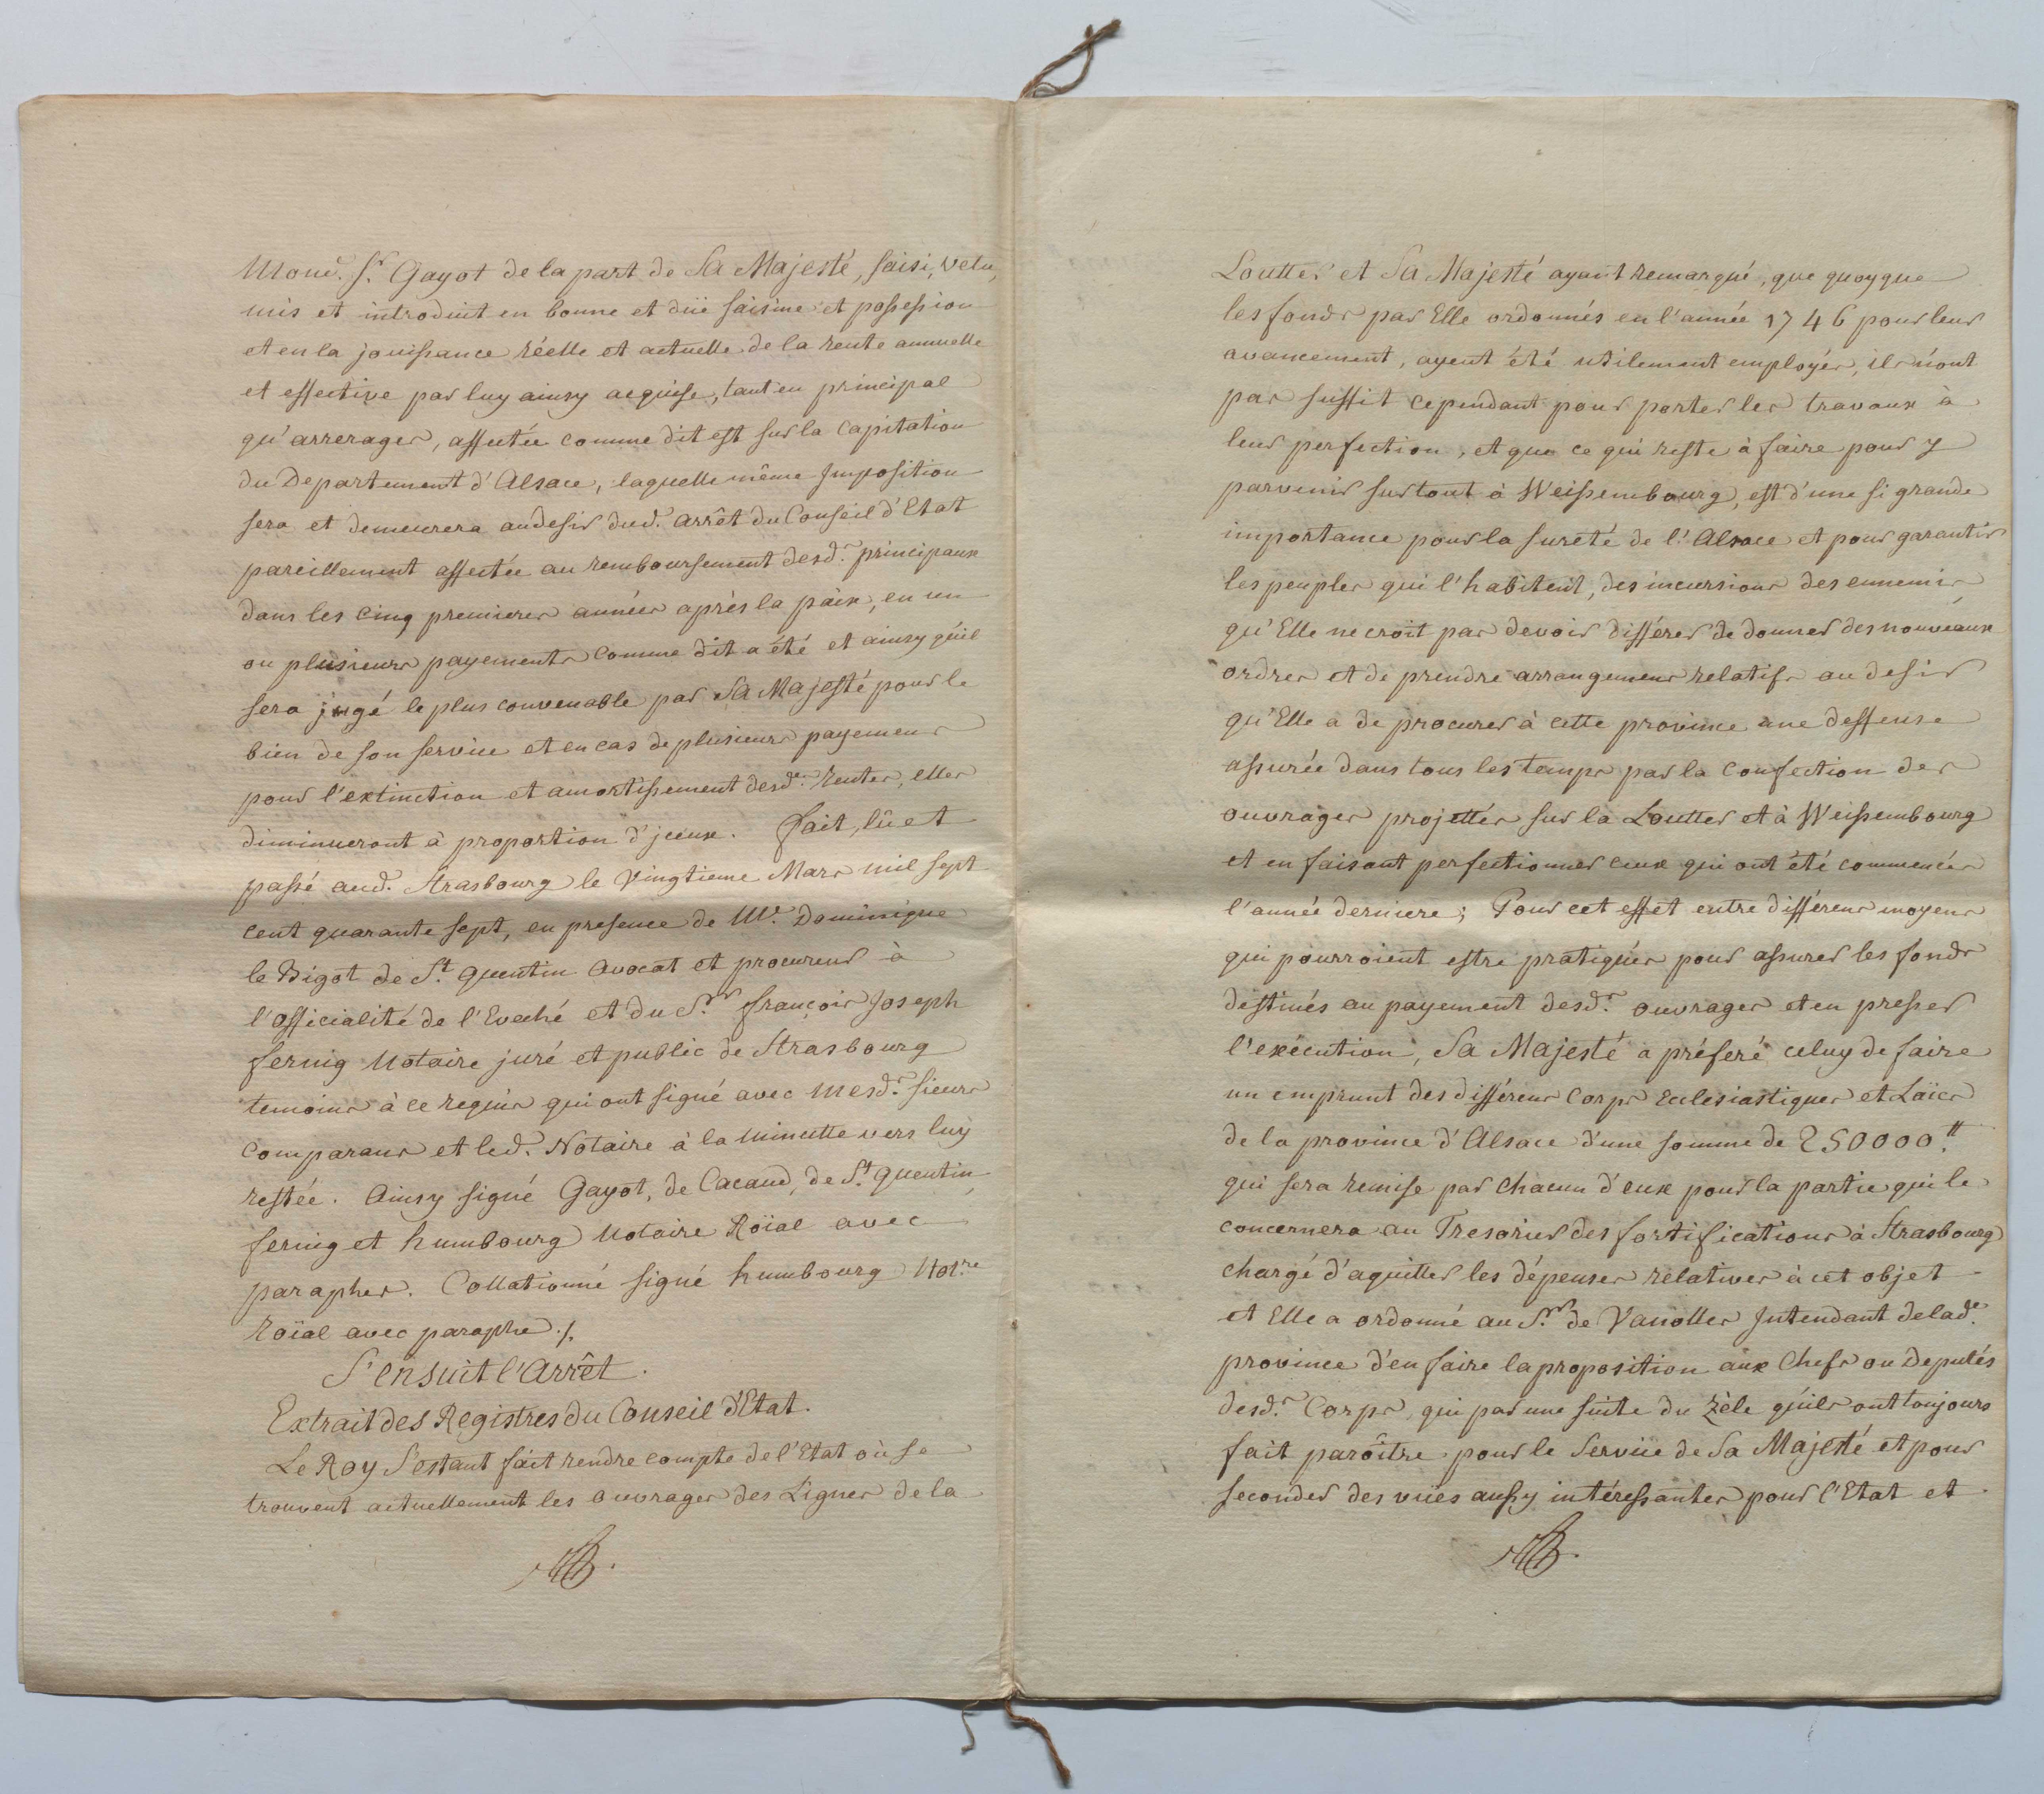 Moud. Sr. Gayot de la part de Sa Majesté, saisi, vetu,
mis et introduit en bonne et düe saisine et possession
et en la jouissance réelle et actuelle de la rente annuelle
et effective par luy ainsy acquise, tant en principal
qu'arrerages, affectée comme dit est sur la Capitation
du Departement d'Alsace, laquelle même Imposition
sera et demeurera au desir dud. Arrêt du Conseil d'Etat
pareillement affectée au remboursement desd.s principaux
dans les cinq premieres années après la paix, en un
ou plusieurs payements comme dit a été et ainsy qu'il
sera jugé le plus convenable par Sa Majesté pour le
bien de son service et en cas de plusieurs payemens
pour l'extinction et amortissement desd.es rentes, elles
diminueront à proportion d'jceux. fait, lû et
passé aud. Strasbourg le vingtieme Mars mil sept
cent quarante sept, en presence de Me. Dominique
le Bigot de St. Quentin Avocat et procureur à
l'officialité de l'Eveché et du Sr. françois Joseph
fernig Notaire juré et public de Strasbourg
temoins à ce requis qui ont signé avec mesd.s sieurs
Comparans et led. Notaire à la Minutte vers luy
restée. Ainsy signé Gayot, de Cacaud, de St. Quentin
fernig et humbourg Notaire Roïal avec
paraphes. Collationné signé humbourg Not.re
Roïal avec paraphe ./.
S'ensuit l'Arrêt.
Extrait des Registres du Conseil d'Etat.
Le Roy S'estant fait rendre compte de l'Etat où se
trouvent actuellement les ouvrages des Lignes de la
Loutter et Sa Majesté ayant remarqué, que quoyque
les fonds par Elle ordonnés en l'année 1746 pour leur
avancement, ayent été utilement employés, ils n'ont
pas suffit cependant pour porter les travaux à
leur perfection, et que ce qui reste à faire pour y
parvenir surtout à Weissembourg, est d'une si grande
importance pour la sureté de l'Alsace et pour garantir
les peuples qui l'habitent, des incursions des ennemis,
qu'Elle ne croit pas devoir différer de donner des nouveaux
ordres et de prendre arrangemens relatifs au desir
qu'Elle a de procurer à cette province une deffense
assurée dans tous les temps par la Confection des
ouvrages projettés sur la Loutter et à Weissembourg
et en faisant perfectionner ceux qui ont été commencés
l'année derniere; Pour cet effet entre différens moyens
qui pourroient estre pratiqués pour assurer les fonds
destinés au payement desd.s ouvrages et en presser
l'exécution, Sa Majesté a préferé celuy de faire
un emprunt des différens Corps Ecclesiastiques et Laïcs
de la province d'Alsace d'une somme de 250000.tt
qui sera remise par chacun d'eux pour la partie qui le
concernera au Tresorier des fortifications à Strasbourg
chargé d'aquitter les dépenses relatives à cet objet
et Elle a ordonné au Sr. de Vanolles Intendant de lad.e
province d'en faire la proposition aux Chefs ou Deputés
desd.s Corps, qui par une suite du Zèle qu'ils ont toujours
fait parôitre pour le Service de Sa Majesté et pour
seconder des vües aussy intéressantes pour l'Etat et